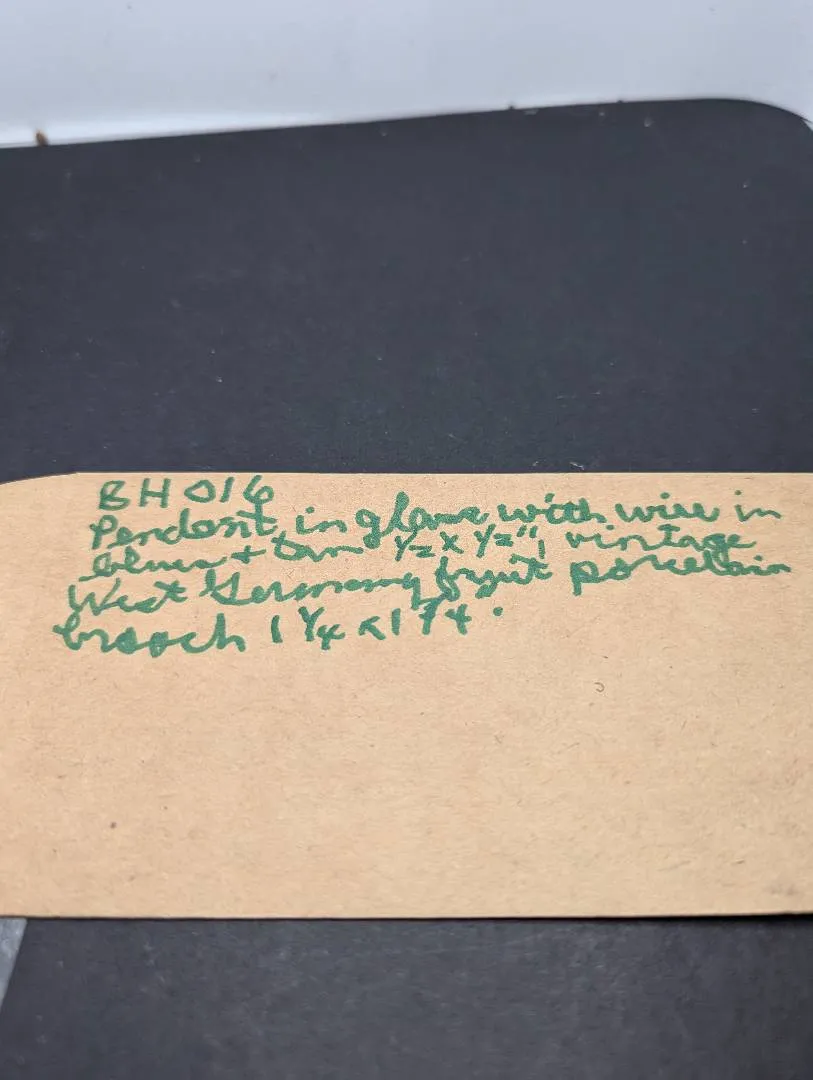 BH 016
Pendant in glass with wire in
blue + tan ½ x ½", vintage
West Germany fruit porcelain
brooch 1 ¼ x 1 ¾.